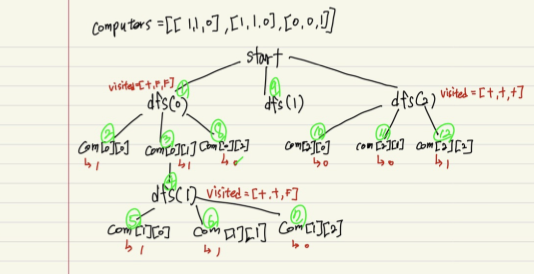 computers = [[1,1,0],[1,1,0],[0,0,1]]
start
visited=[t,F,F] ① ⑨ visited = [t,t,t]
dfs(0) dfs(1) dfs(2)
② ③ ⑧ ⑩ ⑪ ⑫
Com[0][0] Com[0][1] Com[0][2] Com[2][0] com[2][1] com[2][2]
↳1 ↳1 ↳0 ↳0 ↳0 ↳1
④
dfs(1) visited=[t,t,F]
⑤ ⑥ ⑦
Com[1][0] Com[1][1] Com[1][2]
↳1 ↳1 ↳0